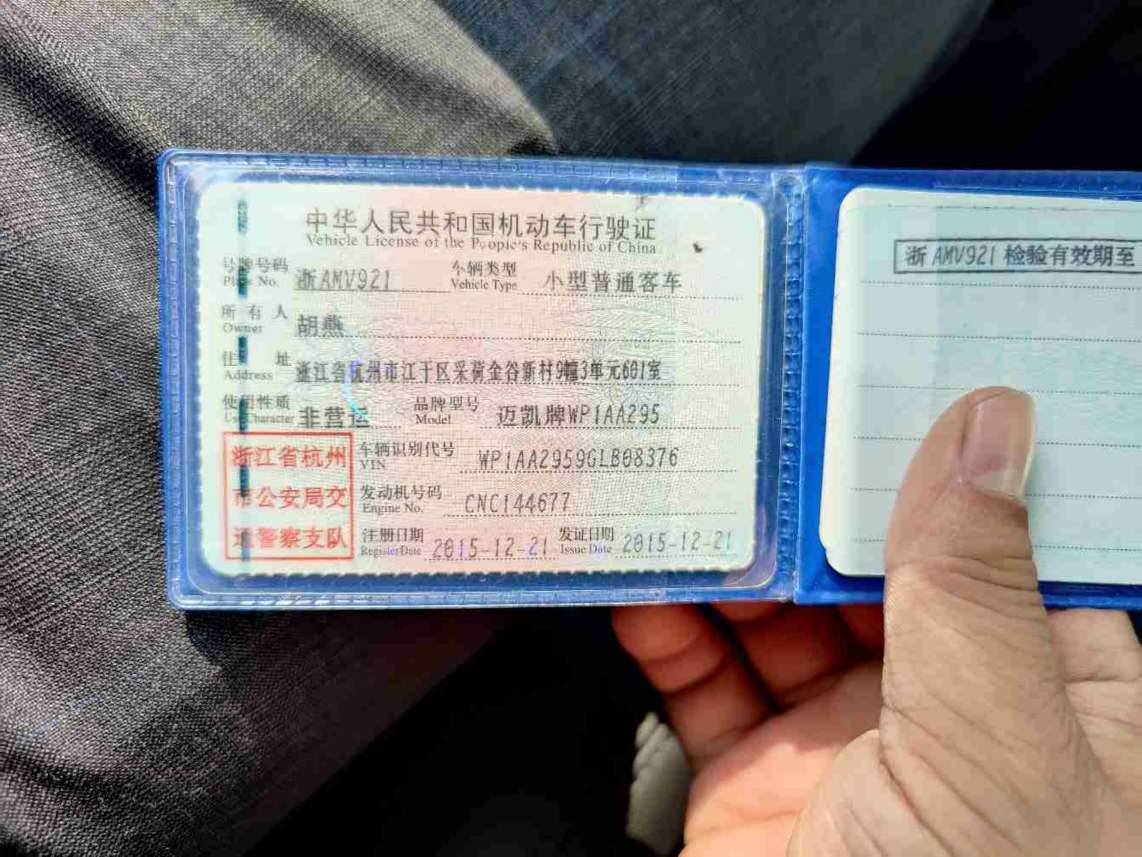 中华人民共和国机动车行驶证
Vehicle License of the People's Republic of China
号牌号码 浙AMV921 车辆类型 小型普通客车
Plate No. Vehicle Type
所有人 胡燕
Owner
住址 浙江省杭州市江干区采荷金谷新村9幢3单元601室
Address
使用性质 非营运 品牌型号 迈凯牌WP1AA295
Use Character Model
车辆识别代号 WP1AA2959GLB08376
VIN
发动机号码 CNC144677
Engine No.
注册日期 2015-12-21 发证日期 2015-12-21
Register Date Issue Date
浙江省杭州
市公安局交
通警察支队
浙AMV921 检验有效期至